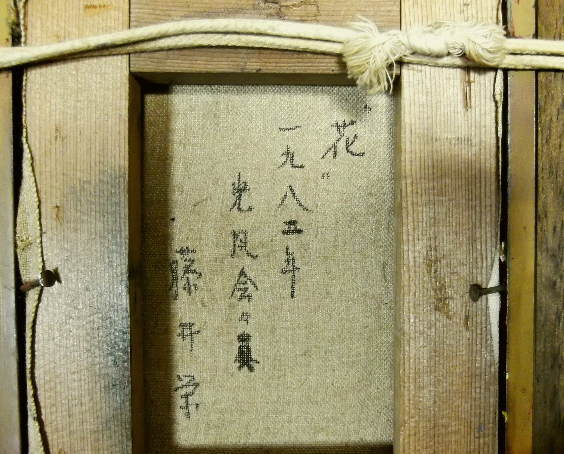 "花"
一九八五年
光風会々員
藤井栄